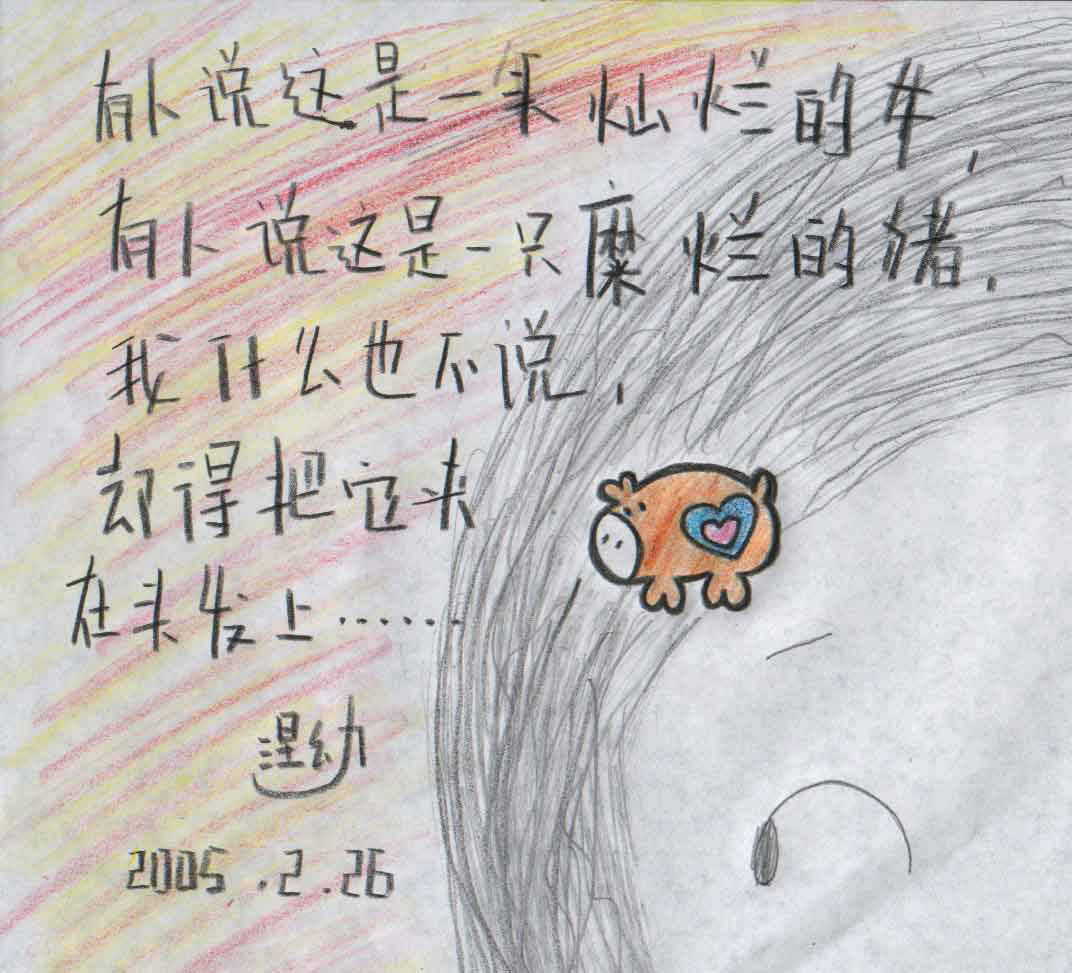 有人说这是一灿烂的牛,
有人说这是一只糜烂的猪.
我什么也不说,
却得把它夹
在头发上……
涅幼
2005.2.26